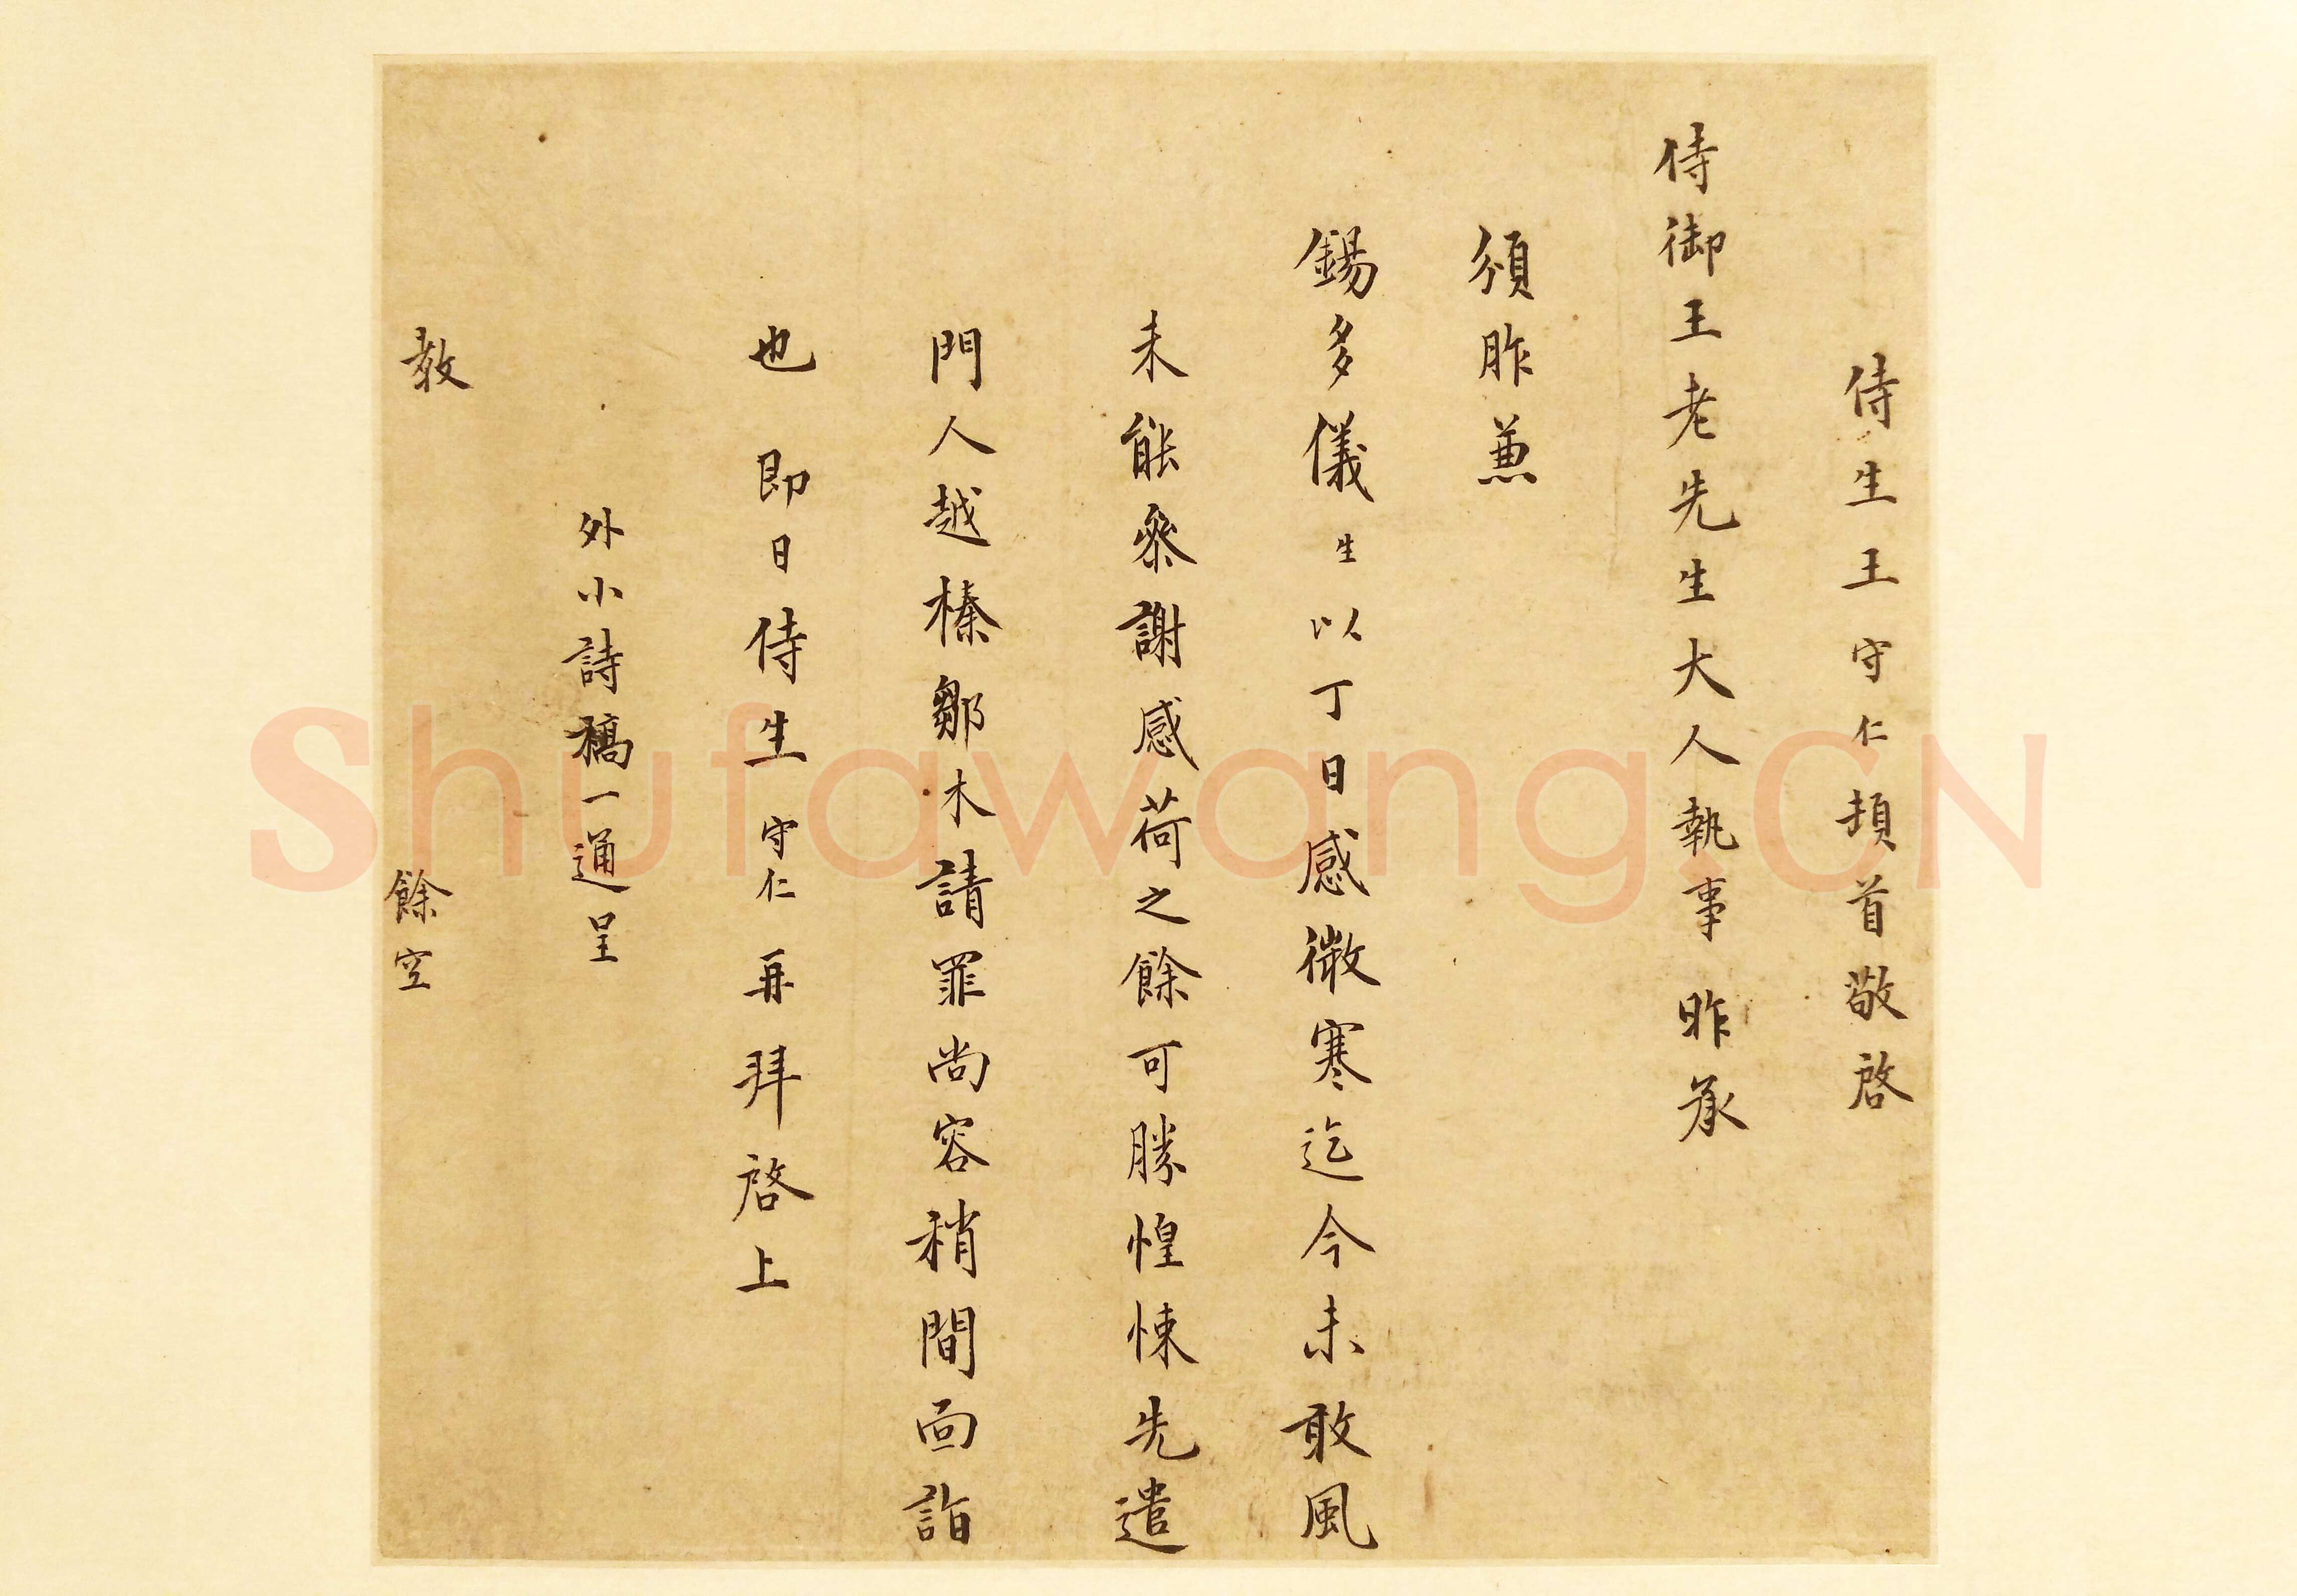 侍生王守仁頓首敬啓
侍御王老先生大人執事昨承
頒胙兼
錫多儀生以丁日感微寒迄今未敢風
未能叅謝感荷之餘可勝惶悚先遣
門人越榛鄒木請罪尚容稍間面詣
也 即日侍生守仁再拜啓上
外小詩稿一通呈
教 餘空
Shufawang.CN